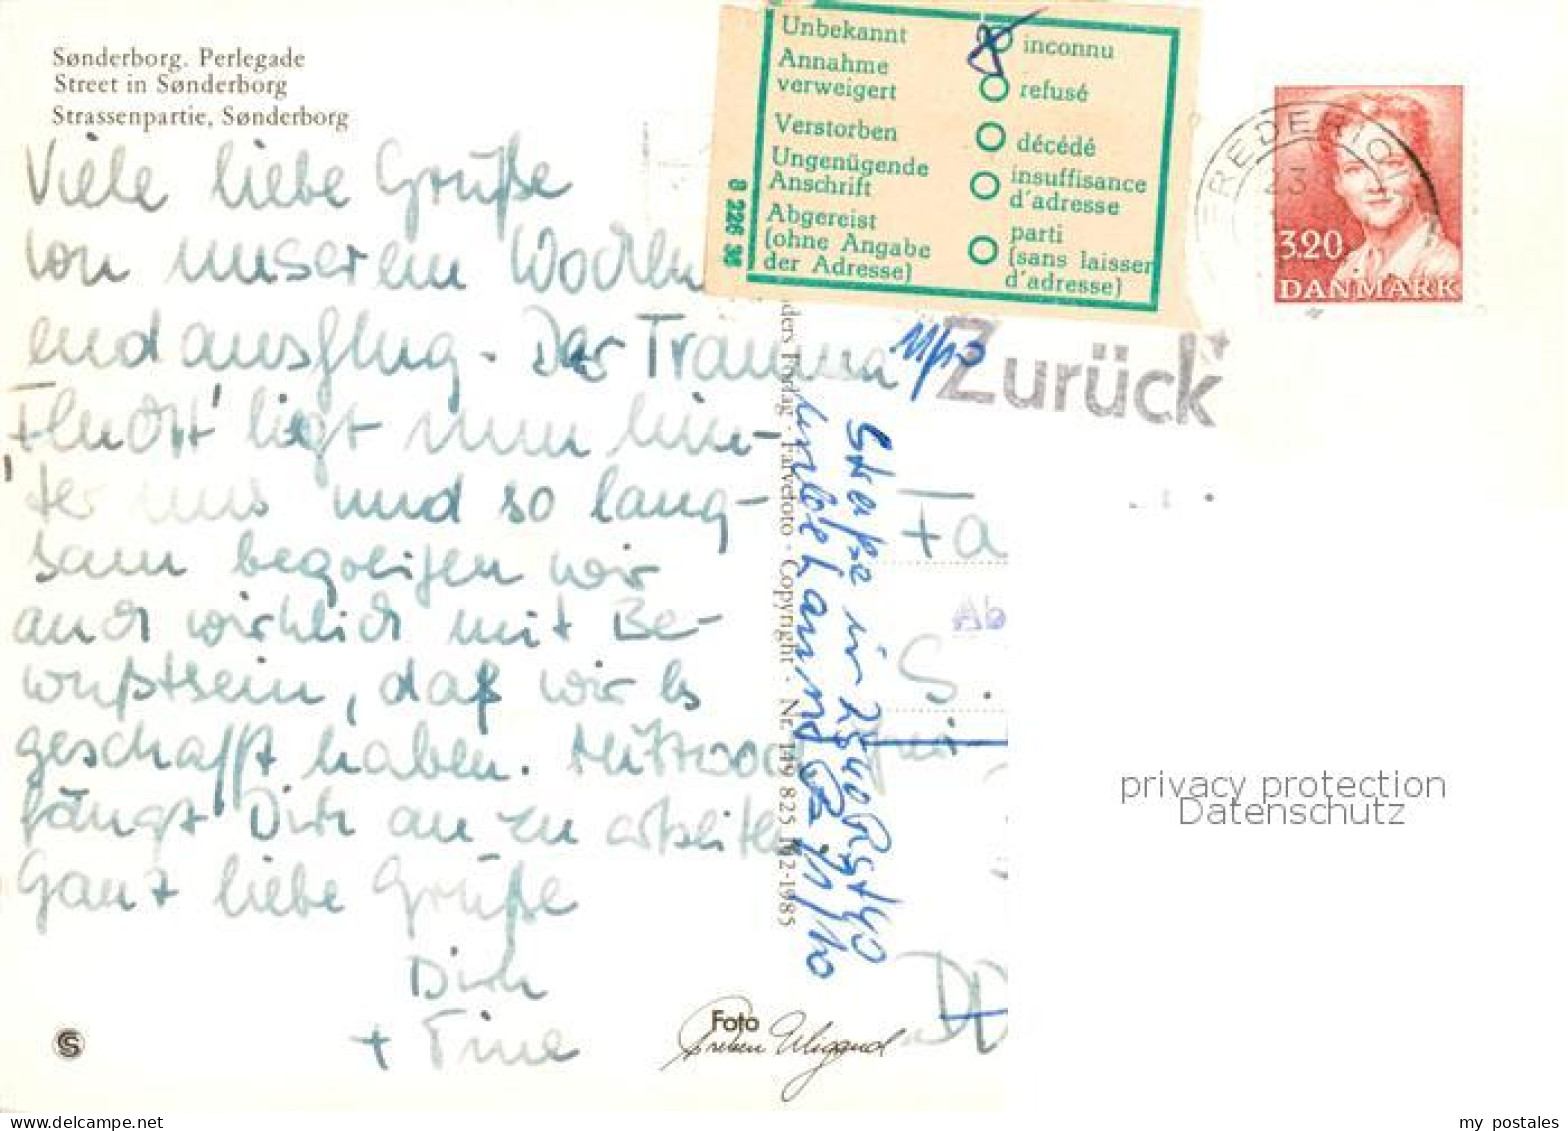 Sønderborg. Perlegade
Street in Sønderborg
Strassenpartie, Sønderborg
Viele liebe Grüße
von unserem Wochen
endausflug. Das Trauma
'Flucht' liegt nun hin-
ter uns und so lang-
sam begreifen wir
auch wirklich mit Be-
wußtsein, daß wir es
geschafft haben. Mittwoch
fängt Dirk an zu arbeiten
Ganz liebe Grüße
Dirk
+ Tine
Unbekannt inconnu
Annahme
verweigert refusé
Verstorben décédé
Ungenügende
Anschrift insuffisance
d'adresse
Abgereist
(ohne Angabe
der Adresse) parti
(sans laisser
d'adresse)
8 226 36
FREDERICI
3.20
DANMARK
Zurück
11/10
ders Forlag · Farvefoto · Copyright · Nr. 149 825 192-1985
Straße in 2540
unbekannt
11/10
Fa
Ab
S.
DD
Foto
privacy protection
Datenschutz
my postales